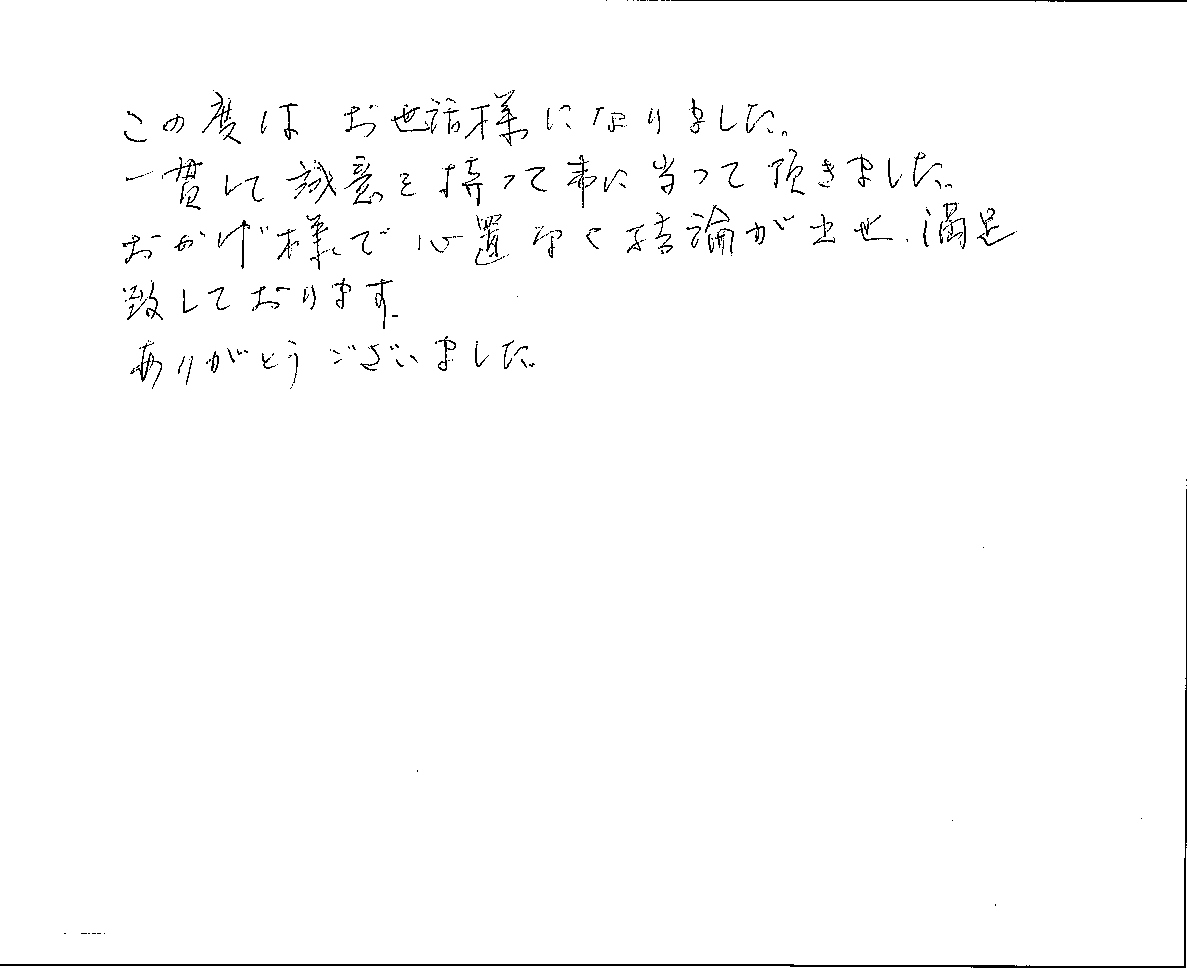 この度は お世話様になりました。
一貫して誠意を持って事に当って頂きました。
おかげ様で心置なく結論が出せ、満足
致しております。
ありがとうございました。